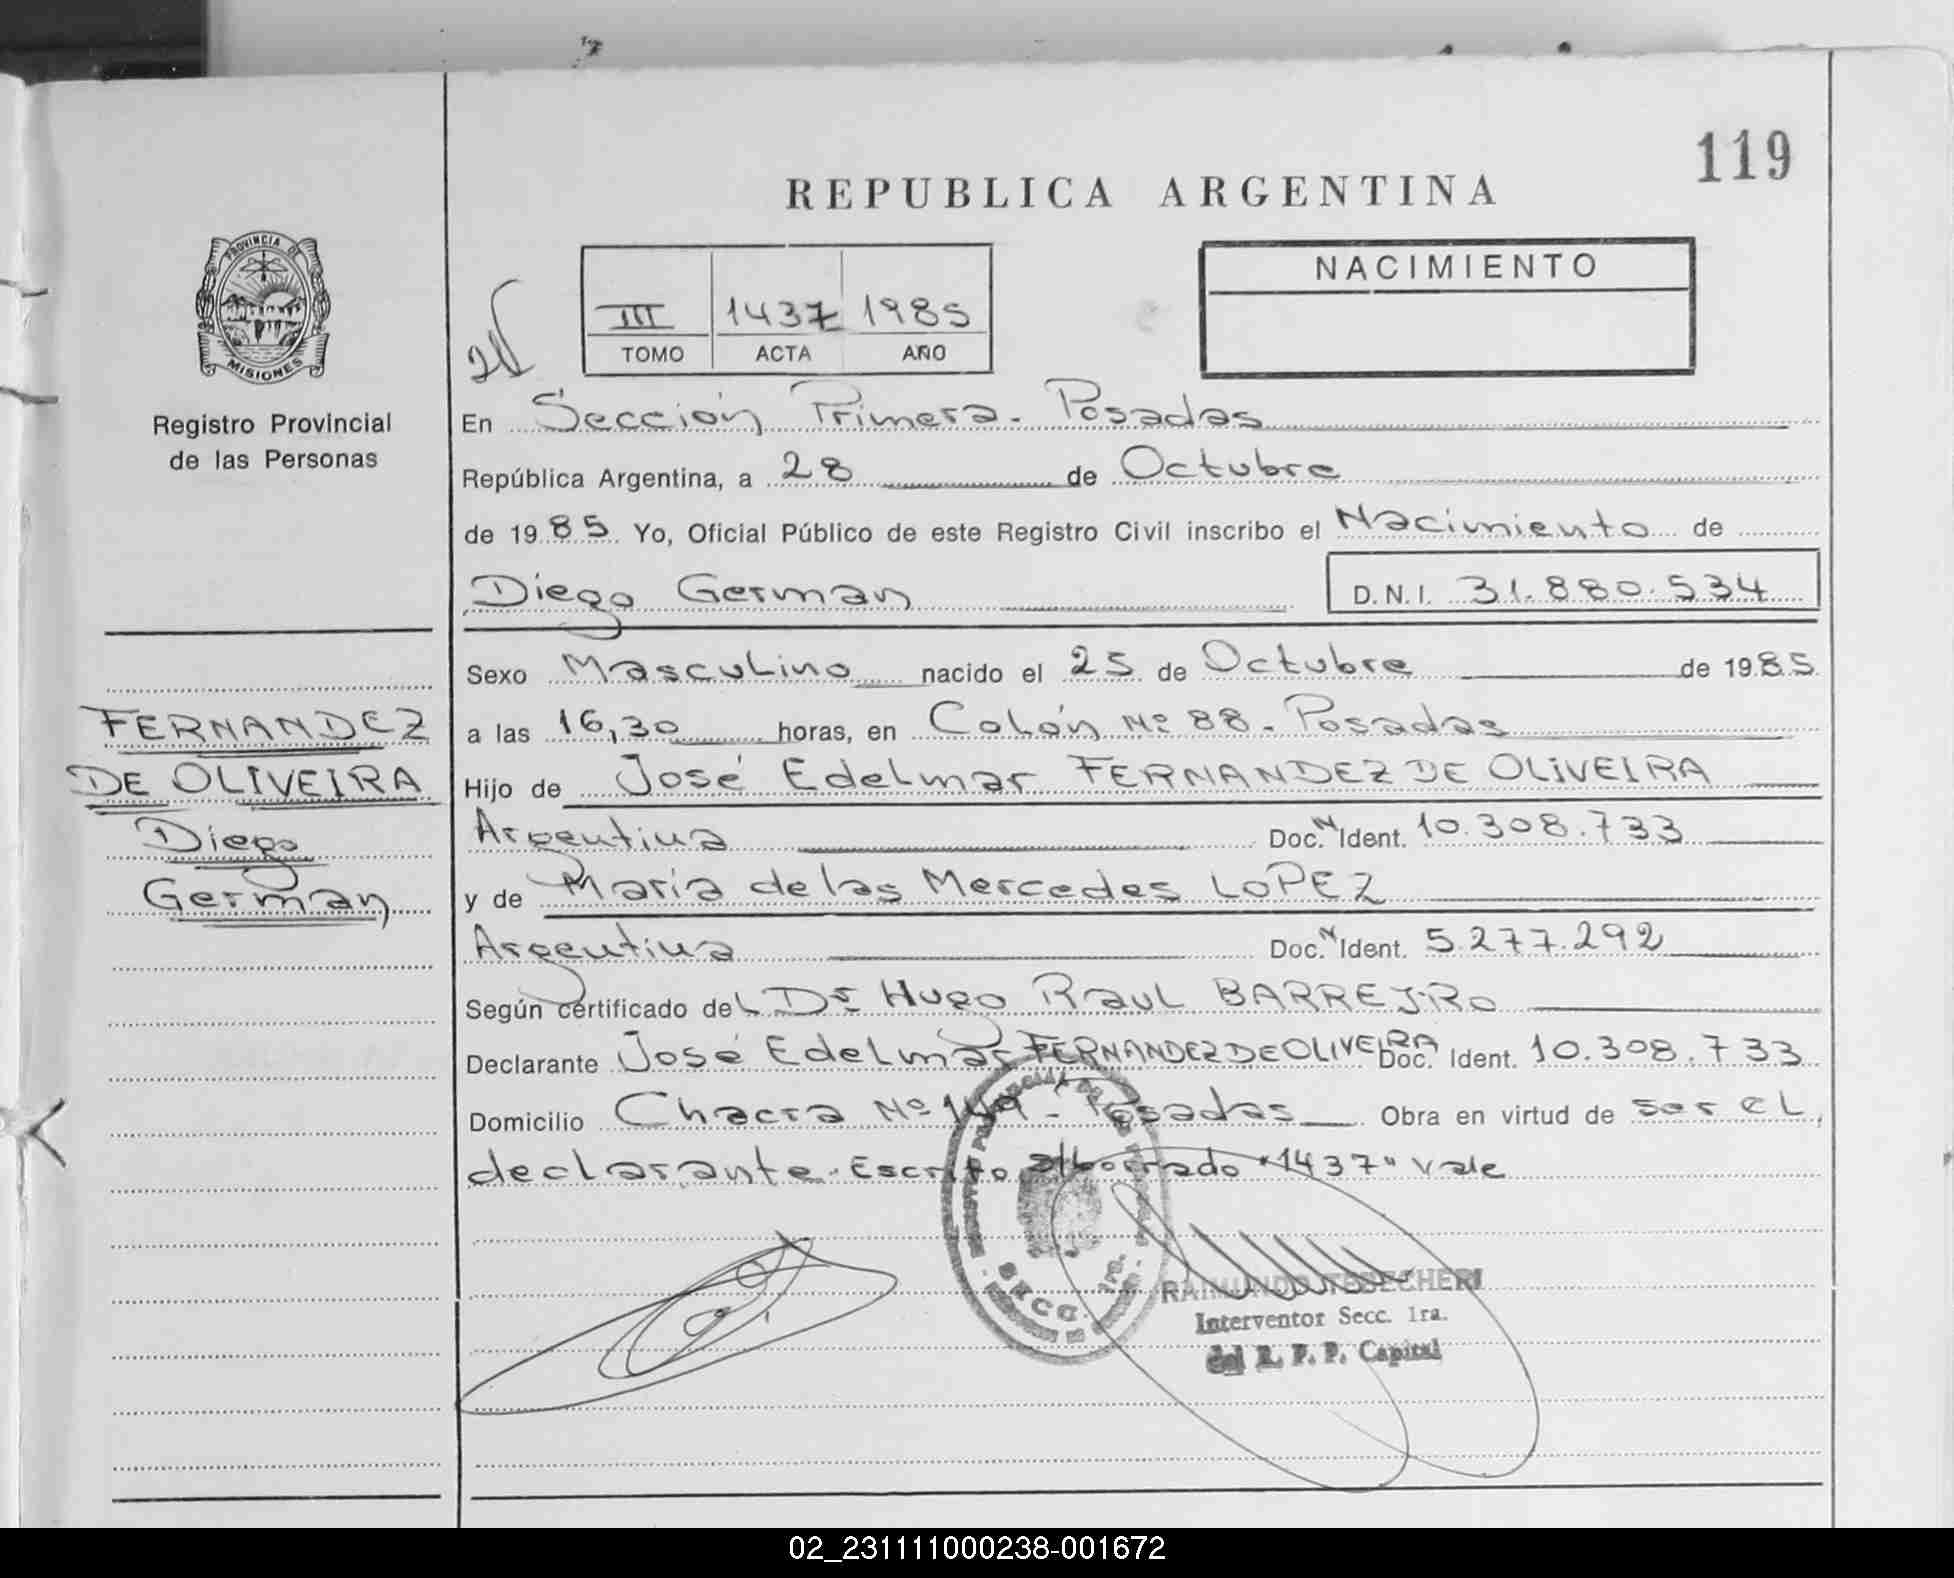 119
REPUBLICA ARGENTINA
PROVINCIA DE
MISIONES
Registro Provincial
de las Personas
III 1437 1985
TOMO ACTA AÑO
NACIMIENTO
En Sección Primera - Posadas
República Argentina, a 28 de Octubre
de 1985 Yo, Oficial Público de este Registro Civil inscribo el Nacimiento de
Diego German D.N.I. 31.880.534
Sexo Masculino nacido el 25 de Octubre de 1985
FERNANDEZ
DE OLIVEIRA
Diego
German
a las 16,30 horas, en Colón Nº 88 - Posadas
Hijo de José Edelmar FERNANDEZ DE OLIVEIRA
Argentina Doc. N Ident. 10.308.733
y de María de las Mercedes LOPEZ
Argentina Doc. N Ident. 5.277.292
Según certificado del Dr Hugo Raul BARREIRO
Declarante José Edelmar FERNANDEZ DE OLIVEIRA Doc. Ident. 10.308.733
Domicilio Chacra Nº 149 - Posadas Obra en virtud de ser el
declarante. Escrito s/borrado "1437" vale
SECC. 1ra.
Interventor Secc. 1ra.
del R. P. P. Capital
02_231111000238-001672